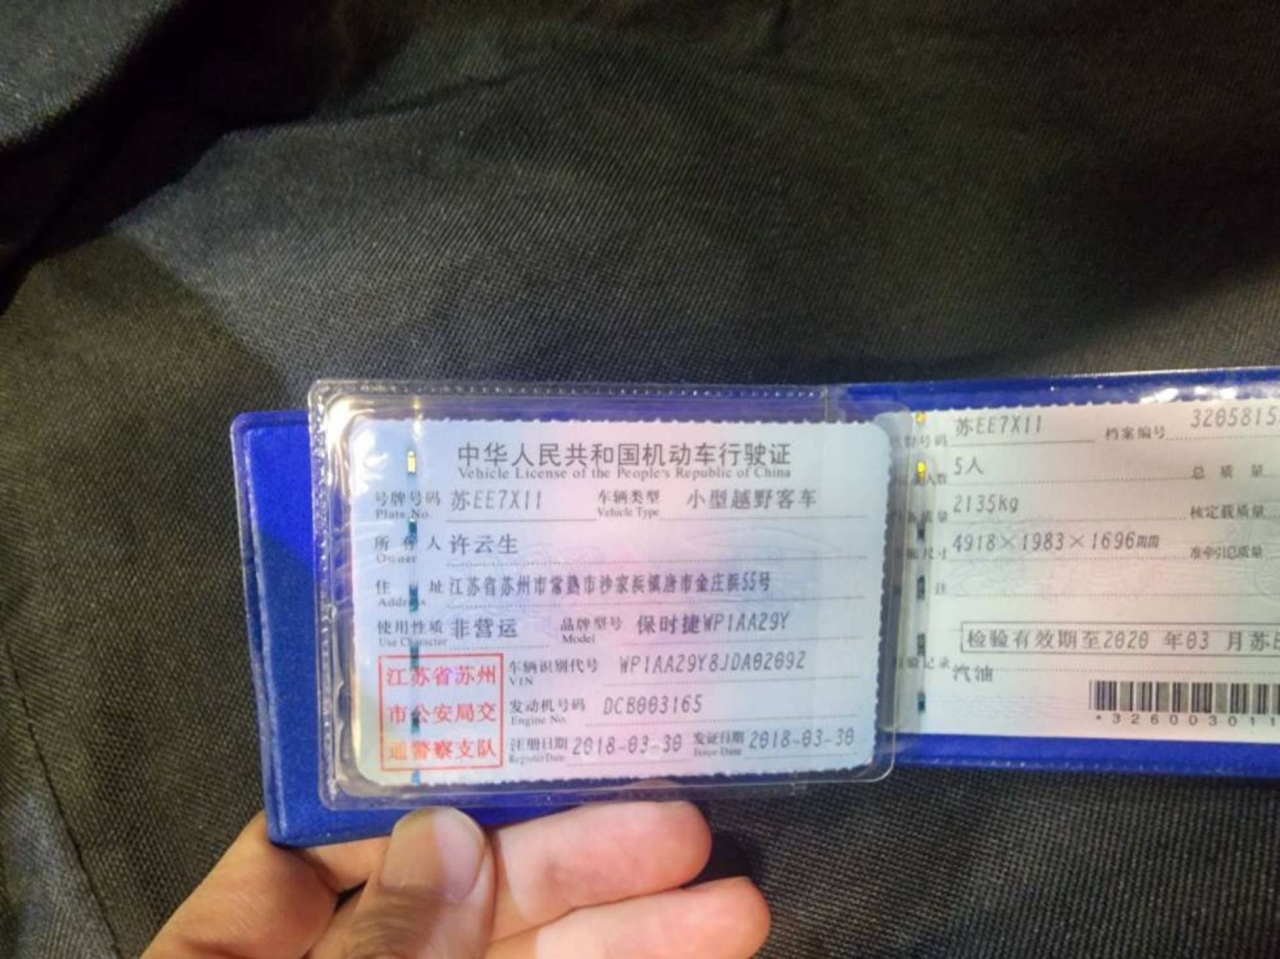 中华人民共和国机动车行驶证
Vehicle License of the People's Republic of China
号牌号码 苏EE7X11 车辆类型 小型越野客车
Plate No. Vehicle Type
所有人 许云生
Owner
住址 江苏省苏州市常熟市沙家浜镇唐市金庄浜55号
Address
使用性质 非营运 品牌型号 保时捷WP1AA29Y
Use Character Model
江苏省苏州
市公安局交
通警察支队
车辆识别代号 WP1AA29Y8JDA02092
VIN
发动机号码 DCB003165
Engine No.
注册日期 2018-03-30 发证日期 2018-03-30
Register Date Issue Date
号码 苏EE7X11 档案编号 3205815
人数 5人 总质量
质量 2135kg 核定载质量
尺寸 4918×1983×1696mm 准牵引总质量
注
检验有效期至2020 年03 月苏
记录
汽油
*326003011